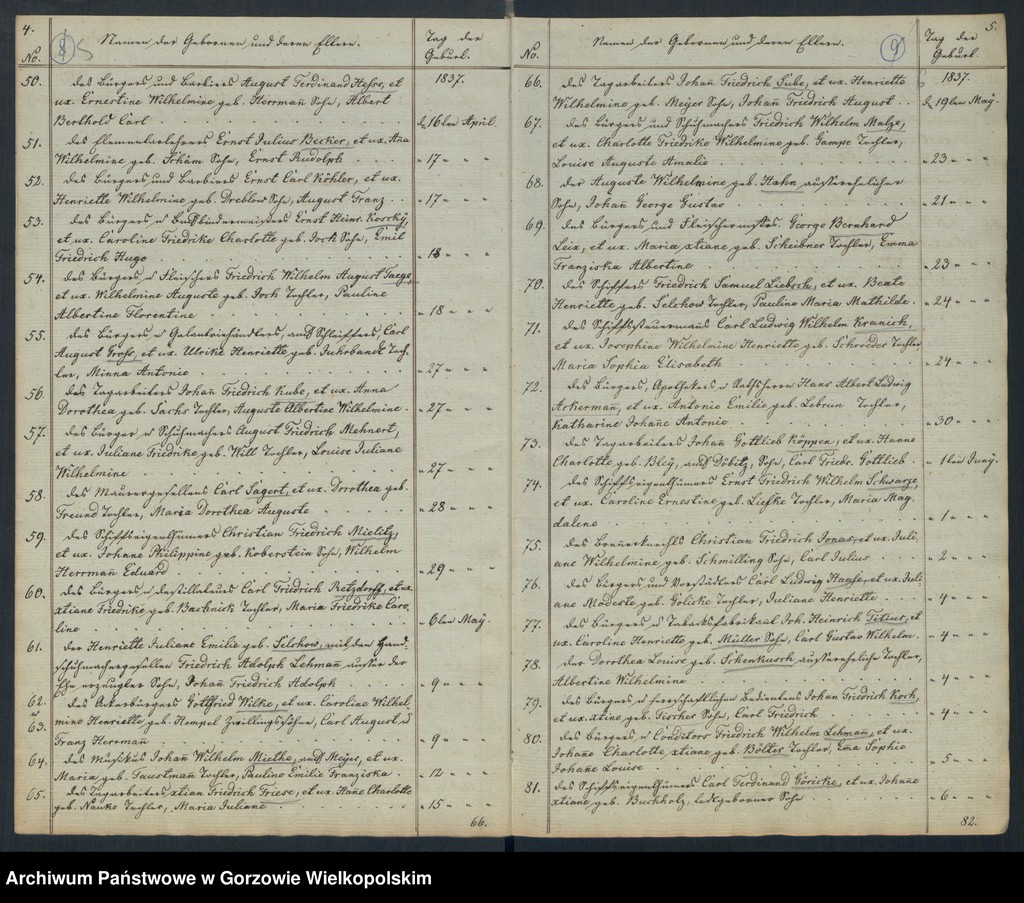 4.
No.
8
5
Namen der Gebornen und deren Eltern.
Tag der
Geburt.
50.
des Bürgers und Barbiers August Ferdinand Hesse, et
1837.
ux. Ernestine Wilhelmine geb. Herrmañ Sohn, Albert
Berthold Carl
16ten April.
51.
des Elementarlehrers Ernst Julius Becker, et ux. Ana
Wilhelmine geb. Sohn, Ernst Rudolph
" 17 " "
52.
des Bürgers und Barbiers Ernst Carl Köhler, et ux.
Henriette Wilhelmine geb. Dreblow Sohn, August Franz
" 17 " "
53.
des Bürgers u Buchbindermeisters Ernst Heinr. Kossky,
et ux. Caroline Friedrike Charlotte geb. Jock Sohn, Emil
Friedrich Hugo
" 18 " "
54.
des Bürgers u Fleischers Friedrich Wilhelm August
et ux. Wilhelmine Auguste geb. Jock Tochter, Pauline
Albertine Florentine
" 18 " "
55.
des Bürgers u Galanteriehändlers, auch Carl
August Groß, et ux. Ulrike Henriette geb. Toch-
ter, Minna Antonie
" 27 " "
56.
des Tagarbeiters Johañ Friedrich Kube, et ux. Anna
Dorothea geb. Sachs Tochter, Auguste Albertine Wilhelmine
" 27 " "
57.
des Bürger u Schuhmachers August Friedrich Mehnert,
et ux. Juliane Friedrike geb. Will Tochter, Louise Juliane
Wilhelmine
" 27 " "
58.
des Maurergesellens Carl Sagert, et ux. Dorothea geb.
Freund Tochter, Maria Dorothea Auguste
" 28 " "
59.
des Schiffseigenthümers Christian Friedrich Mielitz,
et ux. Johane Philippine geb. Koberstein Sohn, Wilhelm
Herrmañ Eduard
" 29 " "
60.
des Bürgers u Destillateurs Carl Friedrich Retzdorff, et ux.
xtiane Friedrike geb. Tochter, Maria Friedrike Caro-
line
" 6ten May.
61.
der Henriette Juliane Emilie geb. Selchow, mit dem Hand-
schuhmachergesellen Friedrich Adolph Lehman außer der
Ehe erzeugter Sohn, Johañ Friedrich Adolph
" 9 " "
62.
u
63.
des Ackerbürgers Gottfried Wilke, et ux. Caroline Wilhel-
mine Henriette geb. Hempel Zwillingssöhne, Carl August u
Franz Herrmañ
" 9 " "
64.
des Musikus Johañ Wilhelm Mielke, auch Meyer, et ux.
Maria geb. Faustmañ Tochter, Pauline Emilie Franziska
" 12 " "
65.
des Tagarbeiters xtian Friedrich Friese, et ux. Hane Charlotte
geb. Nauke Tochter, Maria Juliane
" 15 " "
66.
5.
No.
Namen der Gebornen und deren Eltern.
9
Tag der
Geburt.
66.
des Tagarbeiters Johañ Friedrich Sube, et ux. Henriette
1837.
Wilhelmine geb. Meyer Sohn, Johañ Friedrich August
19ten May.
67.
des Bürgers und Schuhmachers Friedrich Wilhelm Malze,
et ux. Charlotte Friedrike Wilhelmine geb. Gampe Tochter,
Louise Auguste Amalie
" 23 " "
68.
der Auguste Wilhelmine geb. Hahn außerehelicher
Sohn, Johañ George Gustav
" 21 " "
69.
des Bürgers und Fleischermstrs. George Bernhard
Leix, et ux. Maria xtiane geb. Scheibner Tochter, Emma
Franziska Albertine
" 23 " "
70.
des Schiffers Friedrich Samuel Liebsch, et ux. Beate
Henriette geb. Selchow Tochter, Pauline Maria Mathilde
" 24 " "
71.
des Schiffssteuermañs Carl Ludwig Wilhelm Kranich,
et ux. Josephine Wilhelmine Henriette geb. Schroeder Tochter
Maria Sophia Elisabeth
" 24 " "
72.
des Bürgers, Apothekers u Rathsherrn Hans Albert Ludwig
Ackerman, et ux. Antonie Emilie geb. Lebrun Tochter,
Katharine Johañe Antonie
" 30 " "
73.
des Tagarbeiters Johañ Gottlieb Köppen, et ux. Hanne
Charlotte geb. Bley, auch Döbitz, Sohn, Carl Friedr. Gottlieb
" 1ten Juny.
74.
des Schiffseigenthümers Ernst Friedrich Wilhelm Schwarze,
et ux. Caroline Ernestine geb. Liefke Tochter, Maria Mag-
dalene
" 1 " "
75.
des Christian Friedrich Jonas, et ux. Juli-
ane Wilhelmine geb. Schmilling Sohn, Carl Julius
" 2 " "
76.
des Bürgers und Vorstädters Carl Ludwig Haase, et ux. Juli-
ane Modeste geb. Golicke Tochter, Juliane Henriette
" 4 " "
77.
des Bürgers u Tabacksfabrikant Joh. Heinrich Titius, et
ux. Caroline Henriette geb. Müller Sohn, Carl Gustav Wilhelm
" 4 " "
78.
der Dorothea Louise geb. Schenkusch außereheliche Tochter,
Albertine Wilhelmine
" 4 " "
79.
des Bürgers u herrschaftlichen Bedienten Johan Friedrich Koch,
et ux. xtine geb. Fischer Sohn, Carl Friedrich
" 4 " "
80.
des Bürgers u Conditors Friedrich Wilhelm Lehmañ, et ux.
Johañe Charlotte xtiane geb. Bölter Tochter, Ema Sophie
Johañe Louise
" 5 " "
81.
des Schiffseigenthümers Carl Ferdinand Göricke, et ux. Johañe
xtiane geb. Buchholz, todtgeborner Sohn
" 6 " "
82.
Archiwum Państwowe w Gorzowie Wielkopolskim